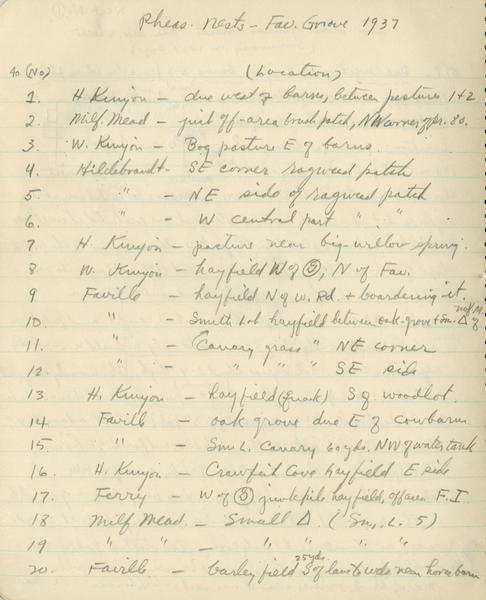 Pheas. Nests - Fav. Grove 1937
(No) (Location)
1. H. Kinyon - due west of barns, between pastures 1 + 2
2. Milf. Mead - just off-area brush patch, NW corner of pr. 80.
3. W. Kinyon - Bog pasture E of barns.
4. Hildebrandt - SE corner ragweed patch
5. " - NE side of ragweed patch
6. " - W central part " "
7 H. Kinyon - pasture near big-willow spring.
8 W. Kinyon - hayfield W of (5), N of Fav.
9 Faville - hayfield N of W. Rd. + boardening it.
10 " - Smith Lot hayfield between oak-grove + Sm. Δ of Milf. M.
11 " - Canary grass " NE corner
12. " - " " " SE side
13 H. Kinyon - hayfield (Quack) S of woodlot.
14 Faville - oak grove due E of cowbarn
15 " - Sm. L. Canary 60 yds. NW of water tank
16. H. Kinyon - Crawfish Cove hayfield E side
17. Ferry - W of (5) junkpile hayfield, off area F. I.
18 Milf Mead - Small Δ (Sm. L. 5)
19 " " - " " " "
20. Faville - barley field 25 yds. S of lane + wds near horse barn